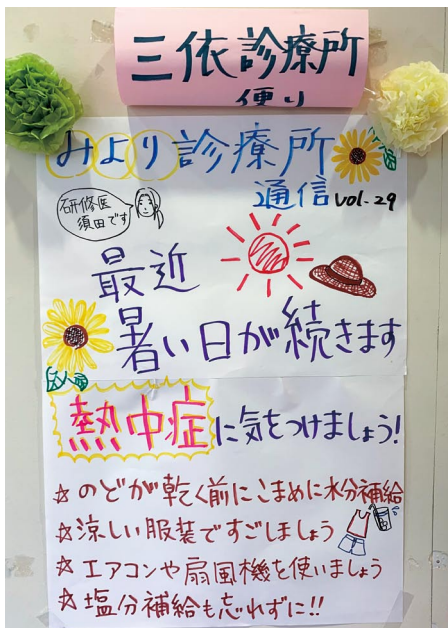 三依診療所
便り
みより診療所
通信 vol.29
研修医
須田です
最近
暑い日が続きます
熱中症に気をつけましょう!
☆のどが乾く前にこまめに水分補給
☆涼しい服装ですごしましょう
☆エアコンや扇風機を使いましょう
☆塩分補給も忘れずに!!